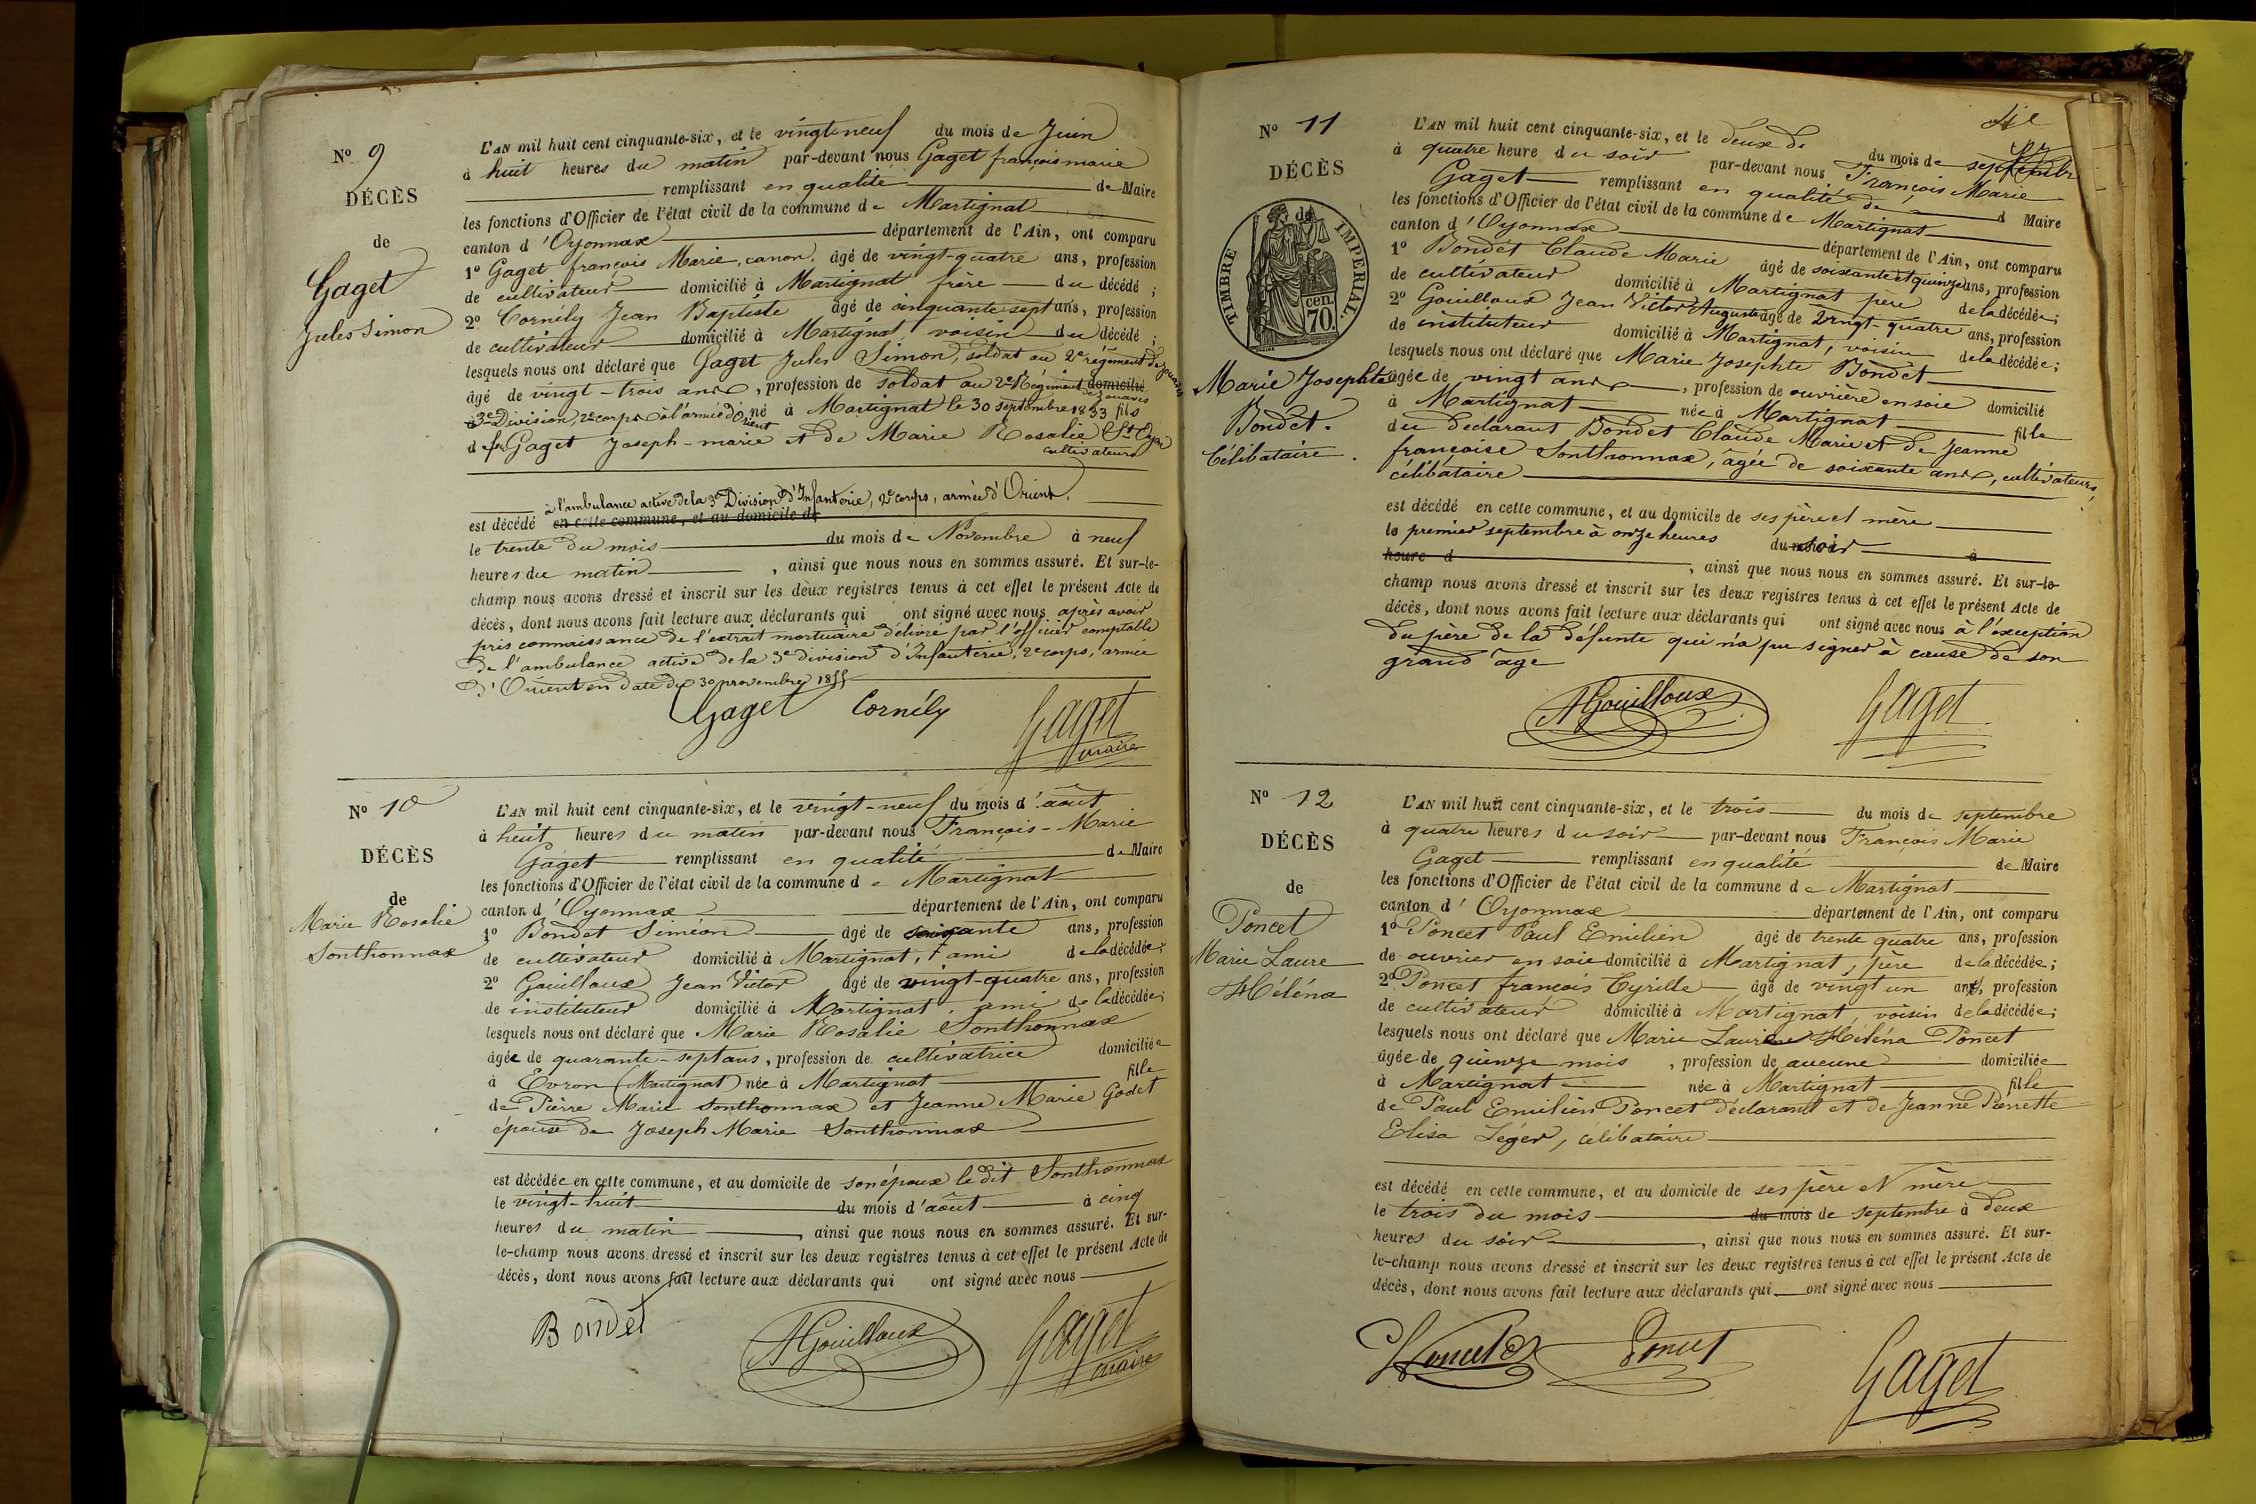 N° 9
DÉCÈS
de
Gaget
Jules Simon
L'AN mil huit cent cinquante-six, et le vingt-neuf du mois de Juin
à huit heures du matin par-devant nous Gaget françois marie
remplissant en qualité de Maire
les fonctions d'Officier de l'état civil de la commune de Martignat
canton d'Oyonnax département de l'Ain, ont comparu
1° Gaget françois Marie, canon, âgé de vingt-quatre ans, profession
de cultivateur domicilié à Martignat frère du décédé ;
2° Cornély Jean Baptiste âgé de cinquante sept ans, profession
de cultivateur domicilié à Martignat voisin du décédé ;
lesquels nous ont déclaré que Gaget Jules Simon, soldat au 2e régiment de zouaves
âgé de vingt-trois ans, profession de soldat au 2e Régiment domicilié
de zouaves
à 3e Division, 2e corps à l'armée d'Orient né à Martignat le 30 septembre 1833 fils
de Gaget Joseph-marie et de Marie Rosalie St Oyen
cultivateurs
à l'ambulance active de la 3e Division d'Infanterie, 2e corps, armée d'Orient.
est décédé en cette commune, et au domicile de
le trente du mois du mois de Novembre à neuf
heures du matin, ainsi que nous nous en sommes assuré. Et sur-le-
champ nous avons dressé et inscrit sur les deux registres tenus à cet effet le présent Acte de
décès, dont nous avons fait lecture aux déclarants qui ont signé avec nous après avoir
pris connaissance de l'extrait mortuaire délivré par l'officier comptable
de l'ambulance active de la 3e division d'Infanterie, 2e corps, armée
d'Orient en date du 30 novembre 1855
Gaget Cornély Gaget
maire
N° 10
DÉCÈS
de
Marie Rosalie
Sonthonnax
L'AN mil huit cent cinquante-six, et le vingt-neuf du mois d'août
à huit heures du matin par-devant nous François-Marie
Gaget remplissant en qualité de Maire
les fonctions d'Officier de l'état civil de la commune de Martignat
canton d'Oyonnax département de l'Ain, ont comparu
1° Bondet Siméon âgé de soixante ans, profession
de cultivateur domicilié à Martignat, ami de la décédée ;
2° Gouilloux Jean Victor âgé de vingt-quatre ans, profession
de instituteur domicilié à Martignat, ami de la décédée ;
lesquels nous ont déclaré que Marie Rosalie Sonthonnax
âgée de quarante-sept ans, profession de cultivatrice domiciliée
à Evron (Martignat) née à Martignat fille
de Pierre Marie Sonthonnax et Jeanne Marie Godet
épouse de Joseph Marie Sonthonnax
est décédée en cette commune, et au domicile de son époux le dit Sonthonnax
le vingt-huit du mois d'août à cinq
heures du matin, ainsi que nous nous en sommes assuré. Et sur-
le-champ nous avons dressé et inscrit sur les deux registres tenus à cet effet le présent Acte de
décès, dont nous avons fait lecture aux déclarants qui ont signé avec nous
Bondet AGouilloux Gaget
maire
N° 11
DÉCÈS
de
TIMBRE IMPERIAL.
70 cen.
Marie Josephte
Bondet.
Célibataire.
L'AN mil huit cent cinquante-six, et le deux de du mois de septembre
à quatre heure du soir par-devant nous François Marie
Gaget remplissant en qualité de d Maire
les fonctions d'Officier de l'état civil de la commune de Martignat
canton d'Oyonnax département de l'Ain, ont comparu
1° Bondet Claude Marie âgé de soixante et quinze ans, profession
de cultivateur domicilié à Martignat père de la décédée ;
2° Gouilloux Jean Victor Auguste âgé de vingt-quatre ans, profession
de instituteur domicilié à Martignat, voisin de la décédée ;
lesquels nous ont déclaré que Marie Josephte Bondet
âgée de vingt ans, profession de ouvrière en soie domicilié
à Martignat née à Martignat fille
du déclarant Bondet Claude Marie et de Jeanne
françoise Sonthonnax, âgée de soixante ans, cultivateurs,
célibataire
est décédé en cette commune, et au domicile de ses père et mère
le premier septembre à onze heures du soir à
heure d, ainsi que nous nous en sommes assuré. Et sur-le-
champ nous avons dressé et inscrit sur les deux registres tenus à cet effet le présent Acte de
décès, dont nous avons fait lecture aux déclarants qui ont signé avec nous à l'exception
du père de la défunte qui n'a pu signer à cause de son
grand âge
AGouilloux Gaget
N° 12
DÉCÈS
de
Poncet
Marie Laure
Héléna
L'AN mil huit cent cinquante-six, et le trois du mois de septembre
à quatre heures du soir par-devant nous François Marie
Gaget remplissant en qualité de Maire
les fonctions d'Officier de l'état civil de la commune de Martignat
canton d'Oyonnax département de l'Ain, ont comparu
1° Poncet Paul Emilien âgé de trente quatre ans, profession
de ouvrier en soie domicilié à Martignat, père de la décédée ;
2° Poncet françois Cyrille âgé de vingt un ans, profession
de cultivateur domicilié à Martignat, voisin de la décédée ;
lesquels nous ont déclaré que Marie Laure Héléna Poncet
âgée de quinze mois, profession de aucune domiciliée
à Martignat née à Martignat fille
de Paul Emilien Poncet déclarant et de Jeanne Pierrette
Elisa Léger, célibataire
est décédé en cette commune, et au domicile de ses père et mère
le trois du mois du mois de septembre à deux
heures du soir, ainsi que nous nous en sommes assuré. Et sur-
le-champ nous avons dressé et inscrit sur les deux registres tenus à cet effet le présent Acte de
décès, dont nous avons fait lecture aux déclarants qui ont signé avec nous
Poncet Poncet Gaget